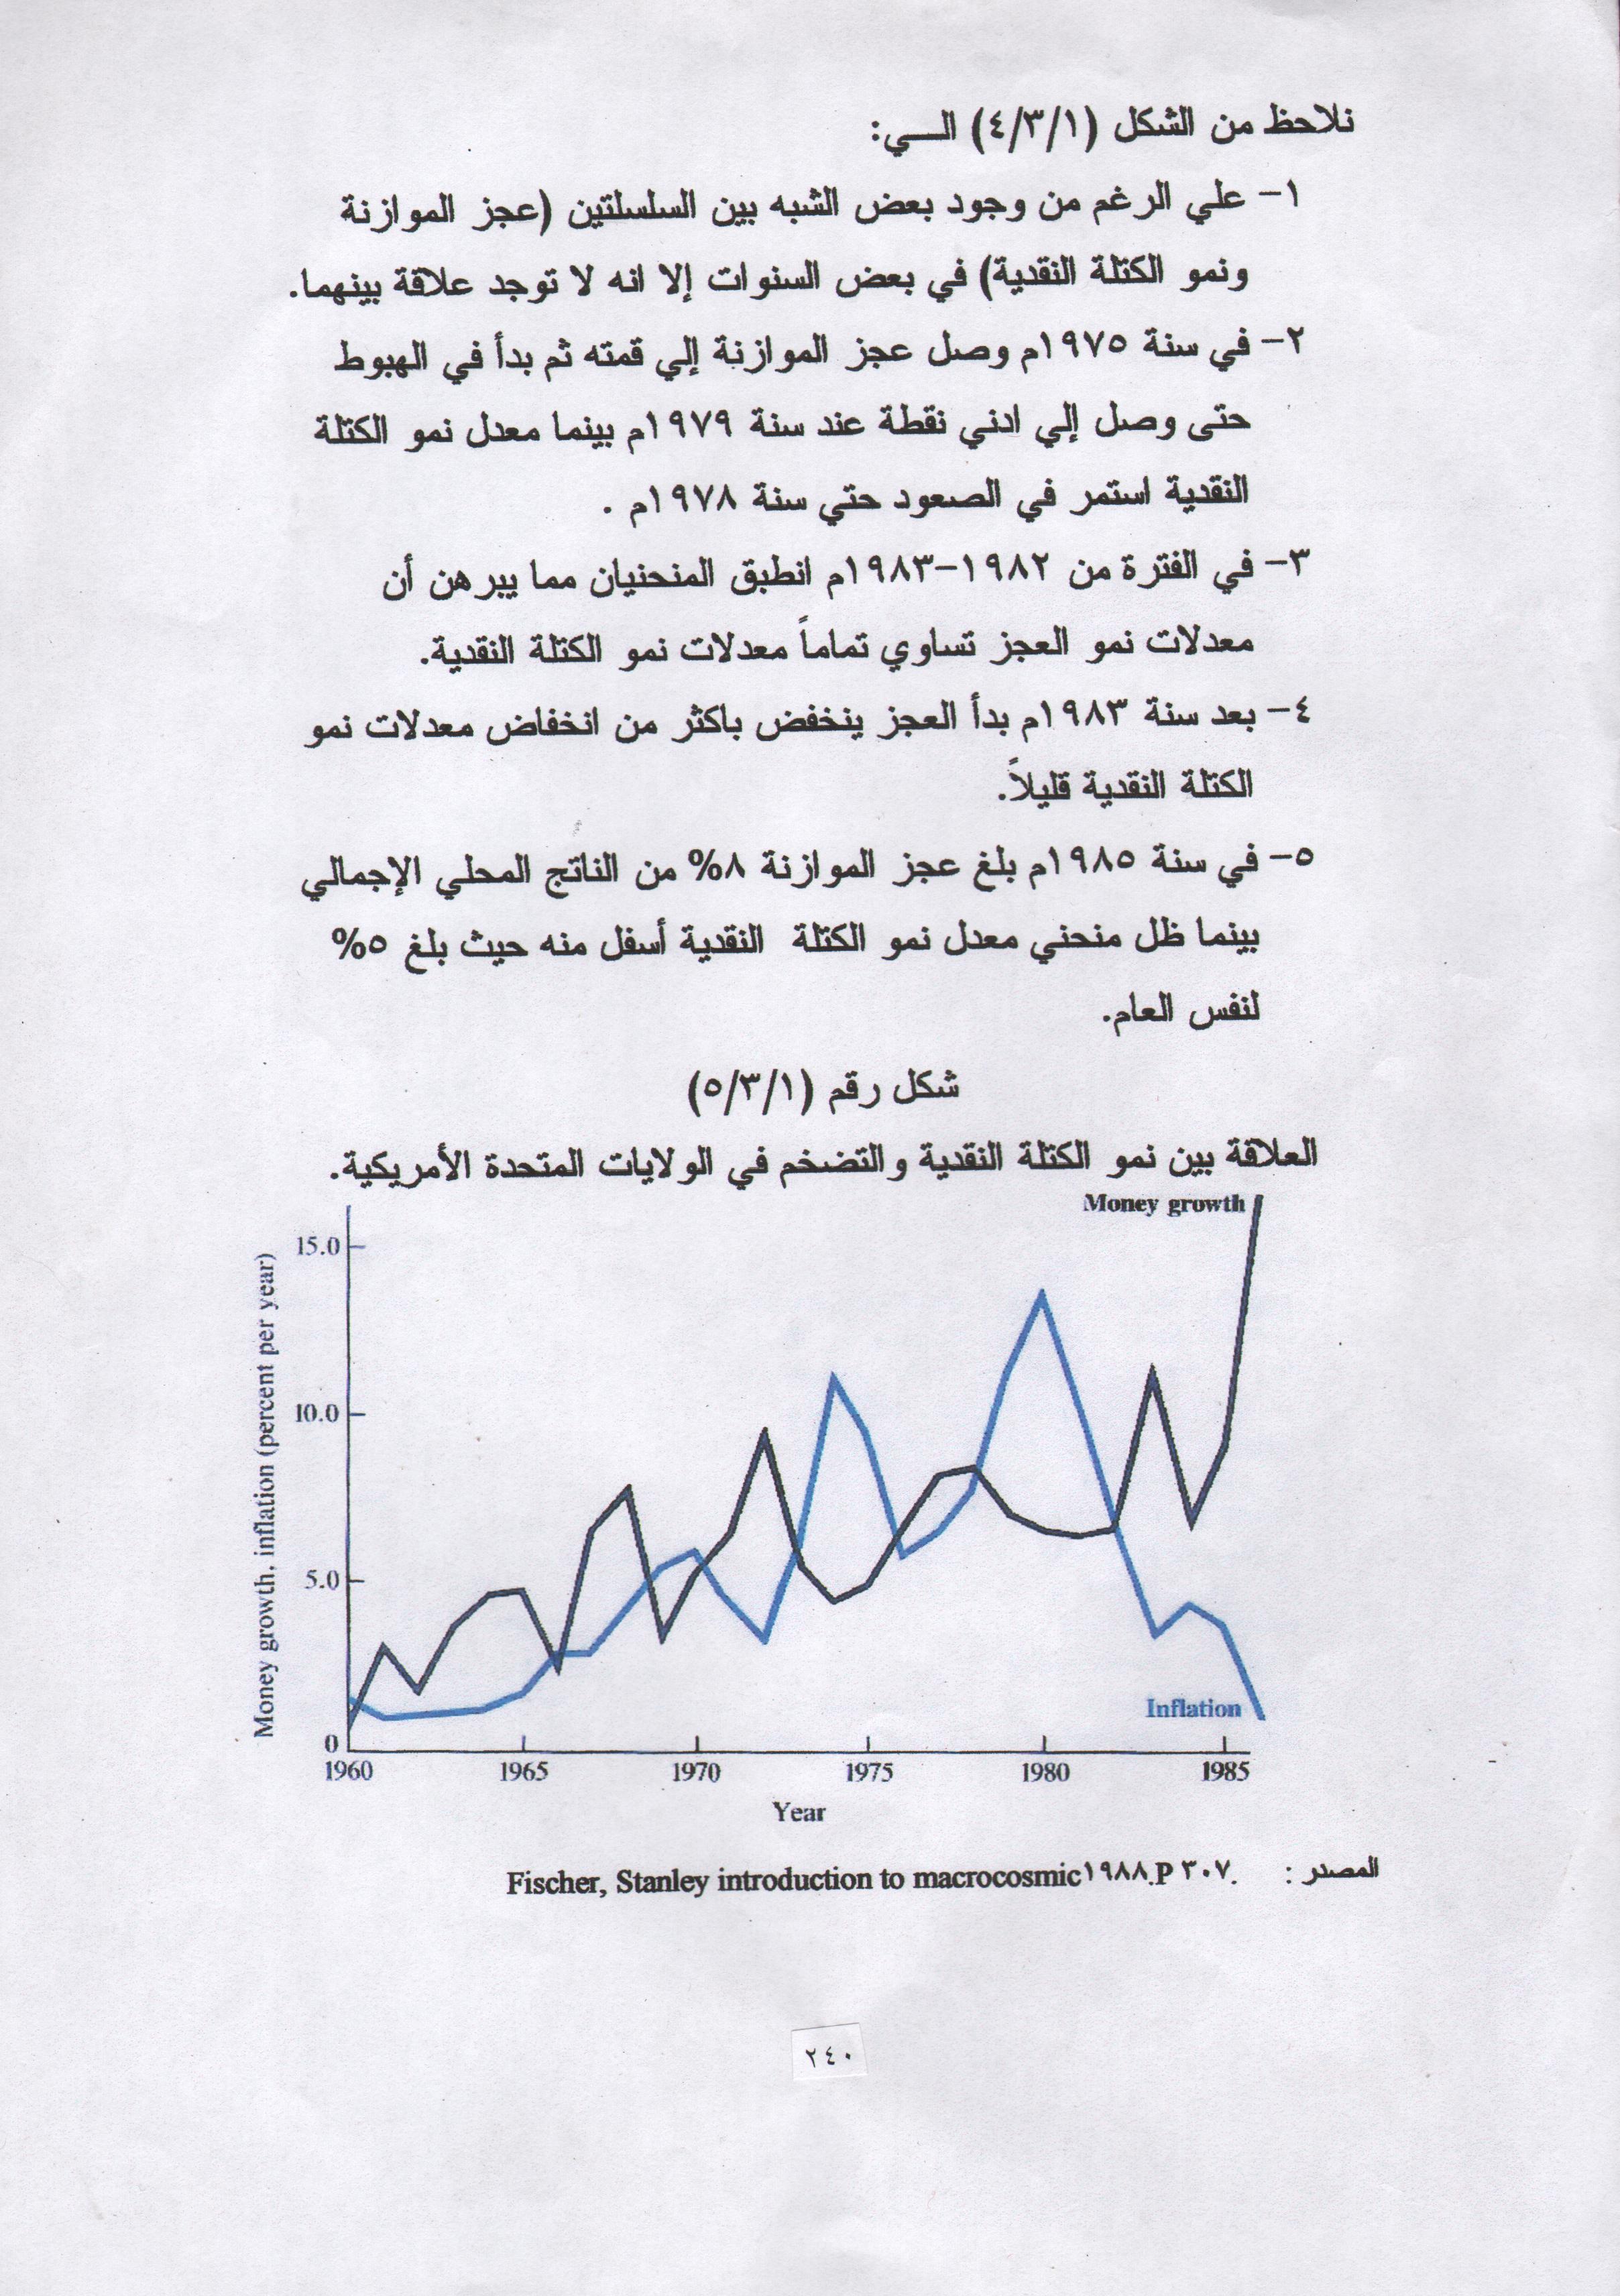 نلاحظ من الشكل (٤/٣/١) الـــي:
١- علي الرغم من وجود بعض الشبه بين السلسلتين (عجز الموازنة
ونمو الكتلة النقدية) في بعض السنوات إلا انه لا توجد علاقة بينهما.
٢- في سنة ١٩٧٥م وصل عجز الموازنة إلي قمته ثم بدأ في الهبوط
حتى وصل إلي ادني نقطة عند سنة ١٩٧٩م بينما معدل نمو الكتلة
النقدية استمر في الصعود حتي سنة ١٩٧٨م .
٣- في الفترة من ١٩٨٢-١٩٨٣م انطبق المنحنيان مما يبرهن أن
معدلات نمو العجز تساوي تماماً معدلات نمو الكتلة النقدية.
٤- بعد سنة ١٩٨٣م بدأ العجز ينخفض باكثر من انخفاض معدلات نمو
الكتلة النقدية قليلاً.
٥- في سنة ١٩٨٥م بلغ عجز الموازنة ٨% من الناتج المحلي الإجمالي
بينما ظل منحني معدل نمو الكتلة النقدية أسفل منه حيث بلغ ٥%
لنفس العام.
شكل رقم (٥/٣/١)
العلاقة بين نمو الكتلة النقدية والتضخم في الولايات المتحدة الأمريكية.
Money growth
Money growth, inflation (percent per year)
15.0
10.0
5.0
0
Inflation
1960 1965 1970 1975 1980 1985
Year
المصدر : Fischer, Stanley introduction to macrocosmic١٩٨٨.P ٣٠٧.
٢٤٠